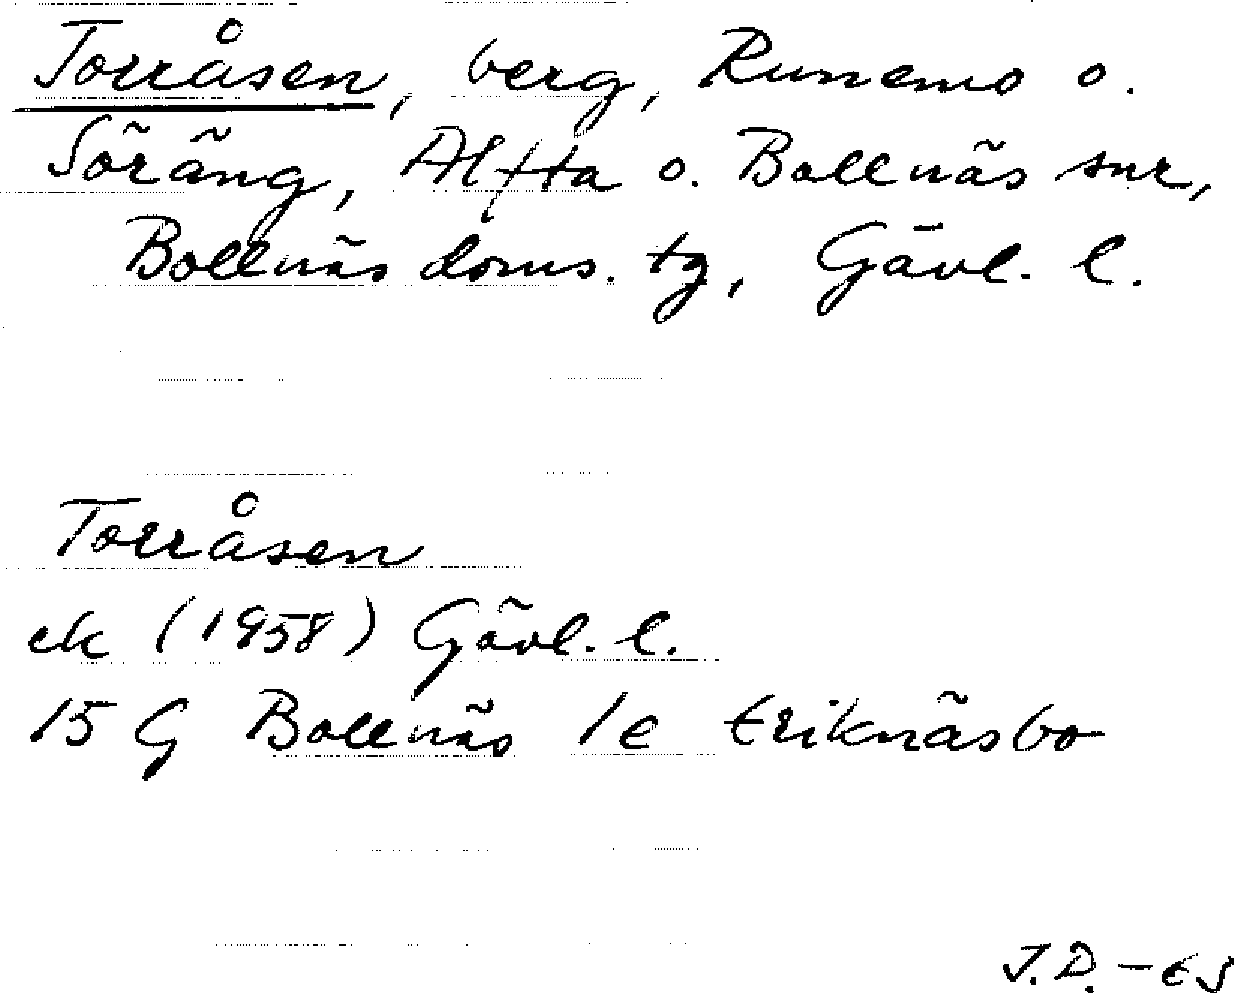 Torråsen, berg, Runemo o.
Söräng, Alfta o. Bollnäs snr,
Bollnäs doms. tg, Gävl. l.
Torråsen
ek (1958) Gävl. l.
15 G Bollnäs 1e Eriknäsbo
J.D. -65